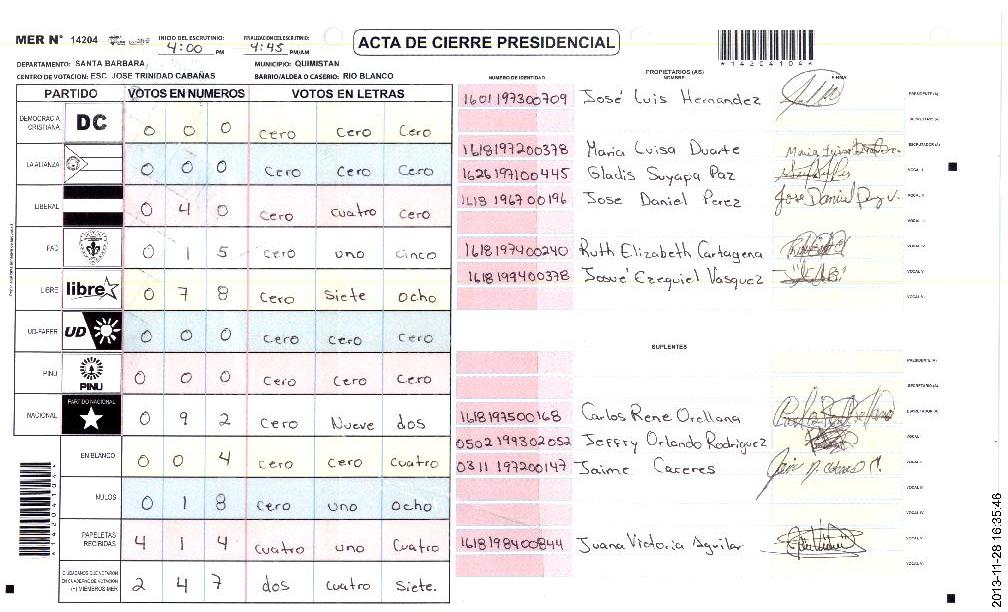 MER N° 14204
INICIO DEL ESCRUTINIO: 4:00 PM
FINALIZACION DEL ESCRUTINIO: 4:45 PM/AM
ACTA DE CIERRE PRESIDENCIAL
*14204104*
DEPARTAMENTO: SANTA BARBARA
MUNICIPIO: QUIMISTAN
CENTRO DE VOTACION: ESC. JOSE TRINIDAD CABAÑAS
BARRIO/ALDEA O CASERIO: RIO BLANCO
PARTIDO VOTOS EN NUMEROS VOTOS EN LETRAS
DEMOCRACIA CRISTIANA DC 0 0 0 Cero Cero Cero
LA ALIANZA 0 0 0 Cero Cero Cero
LIBERAL 0 4 0 Cero Cuatro Cero
PAC 0 1 5 Cero uno Cinco
LIBRE libre 0 7 8 Cero Siete Ocho
UD-FAPER UD 0 0 0 Cero Cero Cero
PINU PINU 0 0 0 Cero Cero Cero
NACIONAL PARTIDO NACIONAL 0 9 2 Cero Nueve dos
EN BLANCO 0 0 4 Cero Cero Cuatro
NULOS 0 1 8 Cero uno Ocho
PAPELETAS RECIBIDAS 4 1 4 Cuatro uno Cuatro
CIUDADANOS QUE VOTARON EN CUADERNO DE VOTACION (+) MIEMBROS MER 2 4 7 dos Cuatro Siete.
NUMERO DE IDENTIDAD PROPIETARIOS (AS) NOMBRE FIRMA
1601197300709 José Luis Hernandez PRESIDENTE (A)
SECRETARIO (A)
1618197200378 Maria Luisa Duarte ESCRUTADOR (A)
1626197100445 Gladis Suyapa Paz VOCAL I
1618 1967 00196 Jose Daniel Perez VOCAL II
VOCAL III
1618197400240 Ruth Elizabeth Cartagena VOCAL IV
1618199400378 Josué Ezequiel Vasquez VOCAL V
VOCAL VI
SUPLENTES
PRESIDENTE (A)
SECRETARIO (A)
1618197500168 Carlos Rene Orellana ESCRUTADOR (A)
0502199302052 Jeffry Orlando Rodriguez VOCAL I
0311197200147 Jaime Caceres VOCAL II
VOCAL III
VOCAL IV
1618198400844 Juana Victoria Aguilar VOCAL V
VOCAL VI
2013-11-28 16:35:46